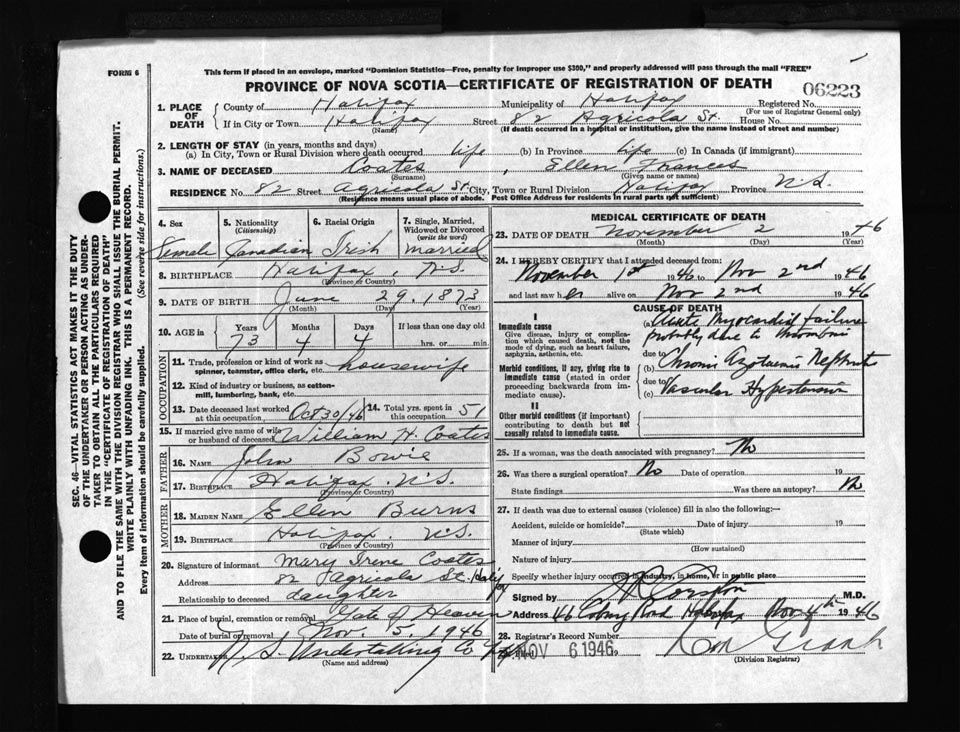 This form if placed in an envelope, marked "Dominion Statistics—Free, penalty for improper use $300," and properly addressed will pass through the mail "FREE"
FORM 6
PROVINCE OF NOVA SCOTIA—CERTIFICATE OF REGISTRATION OF DEATH
06223
1. PLACE OF DEATH
County of Halifax Municipality of Halifax Registered No.
(For use of Registrar General only)
If in City or Town Halifax Street 82 Agricola St. House No.
(Name) (If death occurred in a hospital or institution, give the name instead of street and number)
2. LENGTH OF STAY (in years, months and days)
(a) In City, Town or Rural Division where death occurred life (b) In Province life (c) In Canada (if immigrant)
3. NAME OF DECEASED Coates, Ellen Frances
(Surname) (Given name or names)
RESIDENCE No. 82 Street Agricola St. City, Town or Rural Division Halifax Province N.S.
(Residence means usual place of abode. Post Office Address for residents in rural parts not sufficient)
SEC. 46—VITAL STATISTICS ACT MAKES IT THE DUTY
OF THE UNDERTAKER OR PERSON ACTING AS UNDER-
TAKER TO OBTAIN ALL THE PARTICULARS REQUIRED
IN THE "CERTIFICATE OF REGISTRATION OF DEATH"
AND TO FILE THE SAME WITH THE DIVISION REGISTRAR WHO SHALL ISSUE THE BURIAL PERMIT.
WRITE PLAINLY WITH UNFADING INK. THIS IS A PERMANENT RECORD.
Every item of information should be carefully supplied. (See reverse side for instructions.)
4. Sex Female
5. Nationality (Citizenship) Canadian
6. Racial Origin Irish
7. Single, Married, Widowed or Divorced (write the word) married
8. BIRTHPLACE Halifax, N.S.
(Province or Country)
9. DATE OF BIRTH June 29, 1873
(Month) (Day) (Year)
10. AGE in Years 73 Months 4 Days 4 If less than one day old hrs. or min.
OCCUPATION
11. Trade, profession or kind of work as spinner, teamster, office clerk, etc. housewife
12. Kind of industry or business, as cotton-mill, lumbering, bank, etc.
13. Date deceased last worked at this occupation Oct 30/46
14. Total yrs. spent in this occupation 51
15. If married give name of wife or husband of deceased William H. Coates
FATHER
16. NAME John Bowie
17. BIRTHPLACE Halifax N.S.
(Province or Country)
MOTHER
18. MAIDEN NAME Ellen Burns
19. BIRTHPLACE Halifax N.S.
(Province or Country)
20. Signature of informant Mary Irene Coates
Address 82 Agricola St. Halifax
Relationship to deceased daughter
21. Place of burial, cremation or removal Gate of Heaven
Date of burial or removal Nov. 5, 1946
22. UNDERTAKER N.S. Undertaking Co
(Name and address)
MEDICAL CERTIFICATE OF DEATH
23. DATE OF DEATH November 2 1946
(Month) (Day) (Year)
24. I HEREBY CERTIFY that I attended deceased from:
November 1st 1946 to Nov 2nd 1946
and last saw her alive on Nov 2nd 1946
CAUSE OF DEATH
I
Immediate cause
Give disease, injury or complication which caused death, not the mode of dying, such as heart failure, asphyxia, asthenia, etc.
(a) Acute Myocardial failure
probably due to
Morbid conditions, if any, giving rise to immediate cause (stated in order proceeding backwards from immediate cause).
due to
(b) Chronic Azotaemic Nephritis
due to
(c) Vascular Hypertension
II
Other morbid conditions (if important) contributing to death but not causally related to immediate cause.
25. If a woman, was the death associated with pregnancy? No
26. Was there a surgical operation? No Date of operation 19
State findings Was there an autopsy? No
27. If death was due to external causes (violence) fill in also the following:—
Accident, suicide or homicide? Date of injury 19
(State which)
Manner of injury
(How sustained)
Nature of injury
Specify whether injury occurred in industry, in home, or in public place
Signed by M.D.
Address Halifax Nov 4th 1946
28. Registrar's Record Number
NOV 6 1946
(Division Registrar)